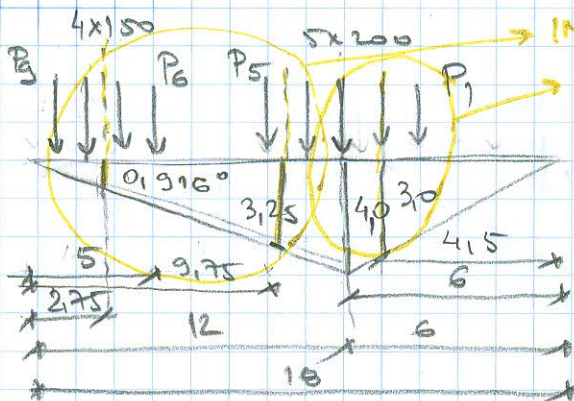 4×150 5×200 IM
P9 P6 P5 P1
0,916°
3,25 4,0 3,0
4,5
5 9,75 6
2,75
12 6
18